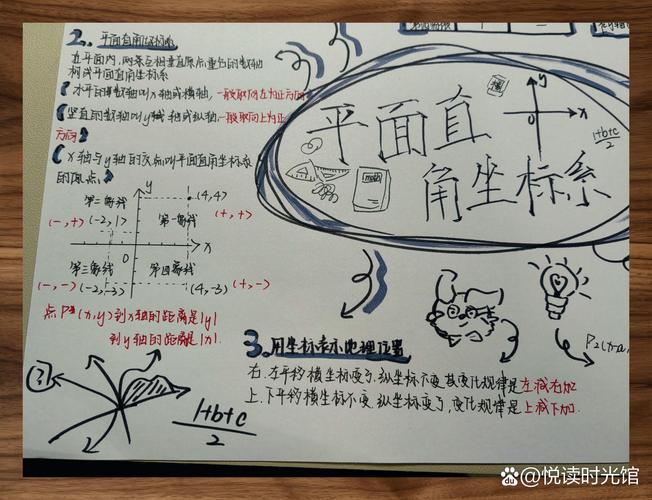 2. 平面直角坐标系
在平面内,两条互相垂直原点重合的数轴
构成平面直角坐标系
水平的数轴叫x轴或横轴,一般取向右为正方向
竖直的数轴叫y轴或纵轴,一般取向上为正
方向
x轴与y轴的交点叫平面直角坐标系
的原点
y
(4,4)
第二象线
第一象线
(-,+)
(-2,1)
(+,+)
x
0
第三象线
第四象线
(-,-)
(-2,-3)
(4,-3)
(+,-)
点P(x,y)到x轴的距离是|y|
到y轴的距离是|x|.
1+b+c
2
y
x
平面直
角坐标系
1+b+c
2
math
3. 用坐标表示地理位置
右.左平移横坐标变了,纵坐标不变,其变化规律是左减右加
上.下平移横坐标不变,纵坐标变了,变化规律是上减下加.
@悦读时光馆